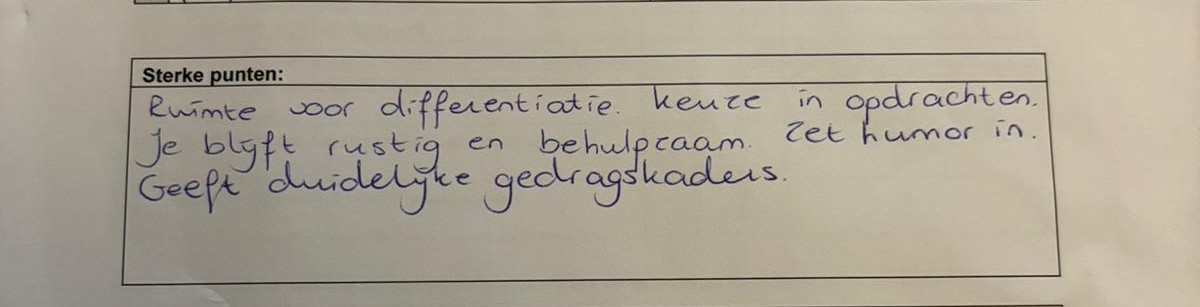 Sterke punten:
Ruimte voor differentiatie. keuze in opdrachten.
Je blijft rustig en behulpzaam. Zet humor in.
Geeft duidelijke gedragskaders.